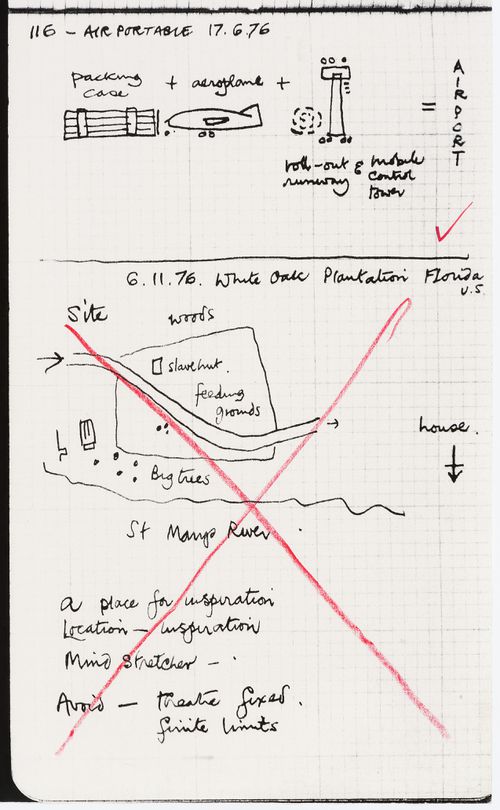 116 - AIRPORTABLE 17.6.76
packing case + aeroplane +
= AIRPORT
roll-out runway & mobile control tower
6.11.76. White Oak Plantation Florida U.S.
Site
woods
slave hut.
feeding grounds
house.
Big trees
St Marys River
a place for inspiration
Location - inspiration
Mind Stretcher -
Avoid - theatre fixed.
finite limits